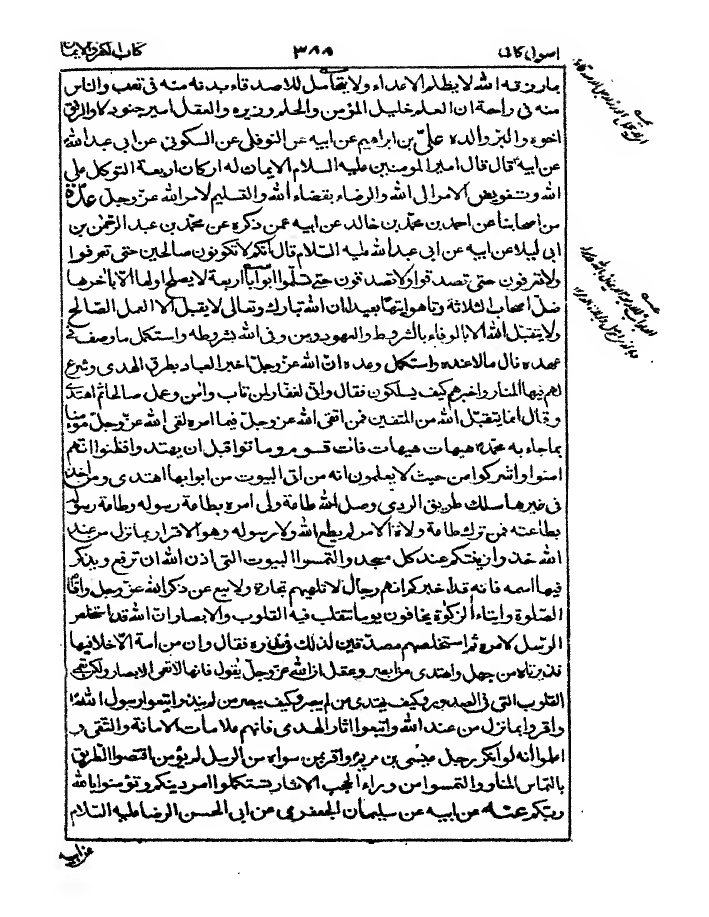 اصول کافی ۳۸۸ کتاب الکفر والایمان
بما رزقه الله لا یظلم الاعداء ولا یتحامل للاصدقاء بدنه منه فی تعب والناس
منه فی راحة ان العلم خلیل المؤمن والحلم وزیره والعقل امیر جنوده والرفق
اخوه والبر والده علی بن ابراهیم عن ابیه عن النوفلی عن السکونی عن ابی عبدالله
عن ابیه قال قال امیر المومنین علیه السلام الایمان له ارکان اربعة التوکل علی
الله وتفویض الامر الی الله والرضاء بقضاء الله والتسلیم لامر الله عز وجل عدة
من اصحابنا عن احمد بن محمد بن خالد عن ابیه عمن ذکره عن محمد بن عبد الرحمن بن
ابی لیلا عن ابیه عن ابی عبد الله علیه السلام قال انکم لا تکونون صالحین حتی تعرفوا
ولا تعرفون حتی تصدقوا ولا تصدقون حتی تسلموا ابوابا اربعة لا یصلح اولها الا باخرها
ضل اصحاب الثلاثة وتاهوا تیها بعیدا ان الله تبارک وتعالی لا یقبل الا العمل الصالح
ولا یتقبل الله الا بالوفاء بالشروط والعهود ومن وفی الله بشروطه واستکمل ما وصف فی
عهده نال ما عنده واستکمل وعده ان الله عز وجل اخبر العباد بطرق الهدی وشرع
لهم فیها المنار واخبرهم کیف یسلکون فقال وانی لغفار لمن تاب وامن وعمل صالحا ثم اهتدی
وقال انما یتقبل الله من المتقین فمن اتقی الله عز وجل فیما امره لقی الله عز وجل مومنا
بما جاء به محمد هیهات هیهات فات قوم وماتوا قبل ان یهتدوا فظنوا انهم
امنوا واشرکوا من حیث لا یعلمون انه من اتی البیوت من ابوابها اهتدی ومن اخذ
فی غیرها سلک طریق الردی وصل الله طاعة ولی امره بطاعة رسوله وطاعة رسوله
بطاعته فمن ترک طاعة ولاة الامر لم یطع الله ولا رسوله وهو الاقرار بما نزل من عند
الله خذوا زینتکم عند کل مسجد والتمسوا البیوت التی اذن الله ان ترفع ویذکر
فیها اسمه فانه قد اخبرکم انهم رجال لا تلهیهم تجارة ولا بیع عن ذکر الله عز وجل واقام
الصلوة وایتاء الزکوة یخافون یوما تتقلب فیه القلوب والابصار ان الله قد استخلص
الرسل لامره ثم استخلصهم مصدقین لذلک فی نذره فقال وان من امة الا خلا فیها
نذیر تاه من جهل واهتدی من ابصر وعقل ان الله عز وجل یقول فانها لا تعمی الابصار ولکن تعمی
القلوب التی فی الصدور وکیف یهتدی من لم یبصر وکیف یبصر من لم ینذر اتبعوا رسول الله
واقروا بما نزل من عند الله واتبعوا اثار الهدی فانهم علامات الامانة والتقی و
اعلموا انه لو انکر رجل عیسی بن مریم واقر بمن سواه من الرسل لم یؤمن اقتصوا الطریق
بالتماس المنار والتمسوا من وراء الحجب الاثار تستکملوا امر دینکم وتؤمنوا بالله
ربکم عنه عن ابیه عن سلیمان الجعفری عن ابی الحسن الرضا علیه السلام
عن ابیه